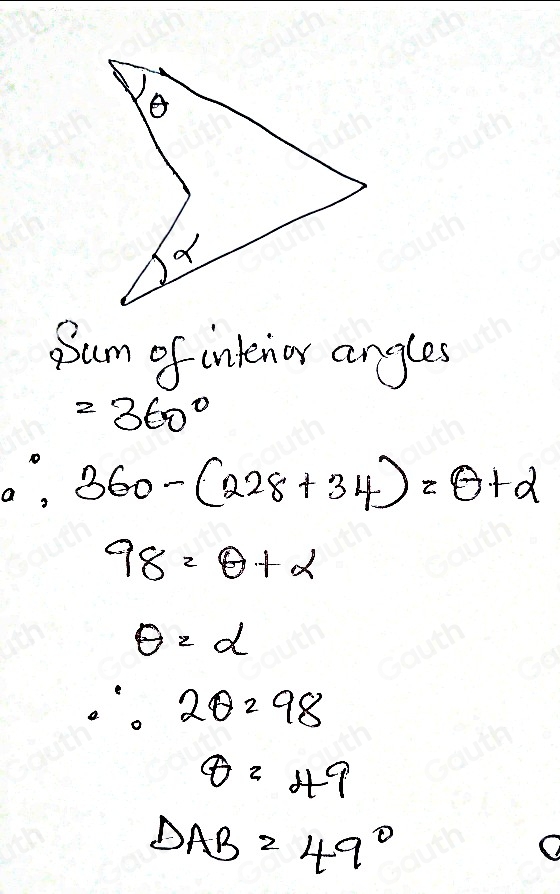 θ
α
Sum of interior angles
= 360°
∴ 360 - (228 + 34) = θ + α
98 = θ + α
θ = α
∴ 2θ = 98
θ = 49
DAB = 49°